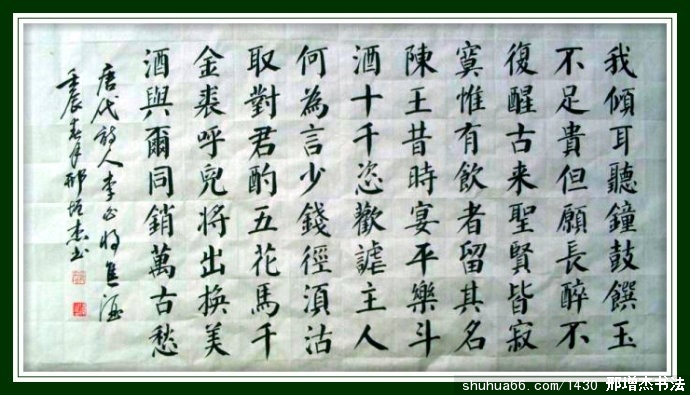 我傾耳聽鐘鼓饌玉
不足貴但願長醉不
復醒古来聖賢皆寂
寞惟有飲者留其名
陳王昔時宴平樂斗
酒十千恣歡謔主人
何為言少錢徑須沽
取對君酌五花馬千
金裘呼兒將出換美
酒與爾同銷萬古愁
唐代詩人李白将進酒
壬辰春月邢增杰书
shuhua66.com/1430 邢增杰书法